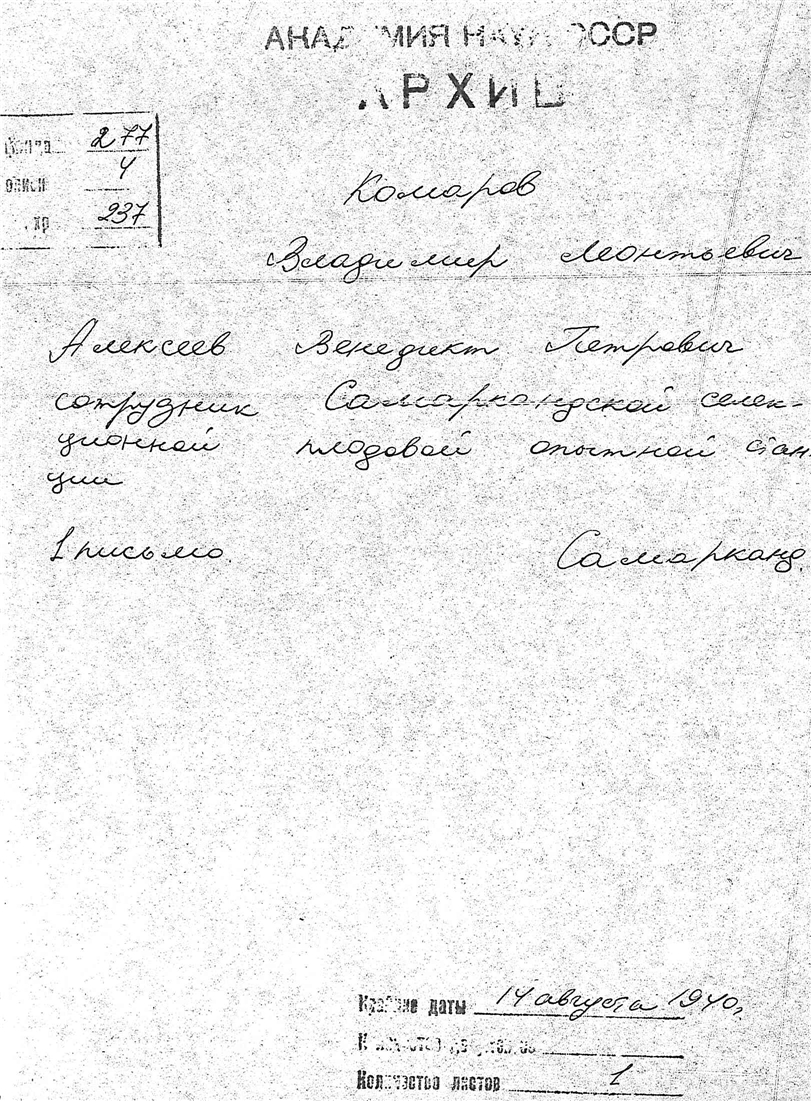 АКАДЕМИЯ НАУК СССР
АРХИВ
Фонд 277
описи 4
хр. 237
Комаров
Владимир Леонтьевич
Алексеев Венедикт Петрович
сотрудник Самаркандской селек-
ционной плодовой опытной стан
ции
1 письмо. Самарканд.
Крайние даты 14 августа 1940г.
Количество документов
Количество листов 1